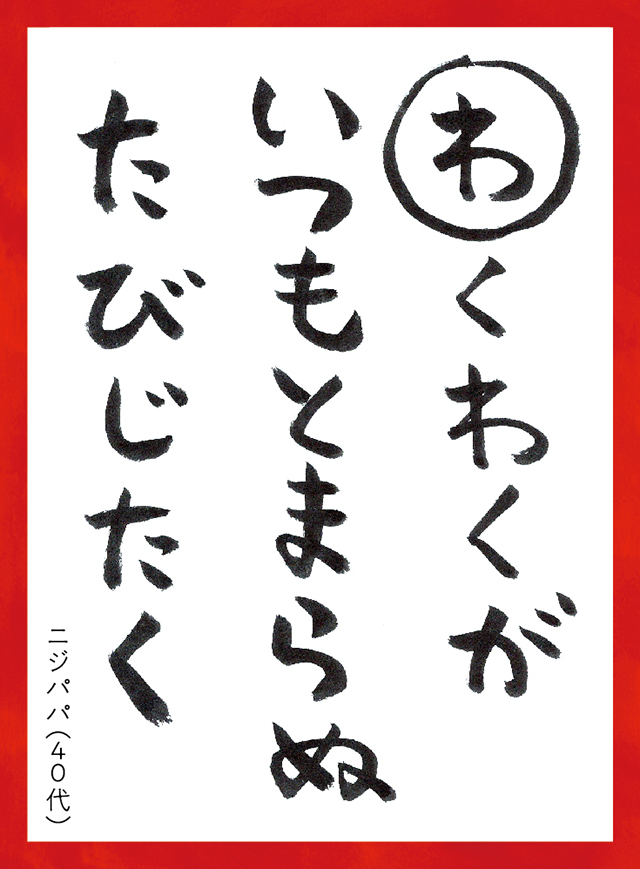 わくわくが
いつもとまらぬ
たびじたく
ニジパパ(40代)